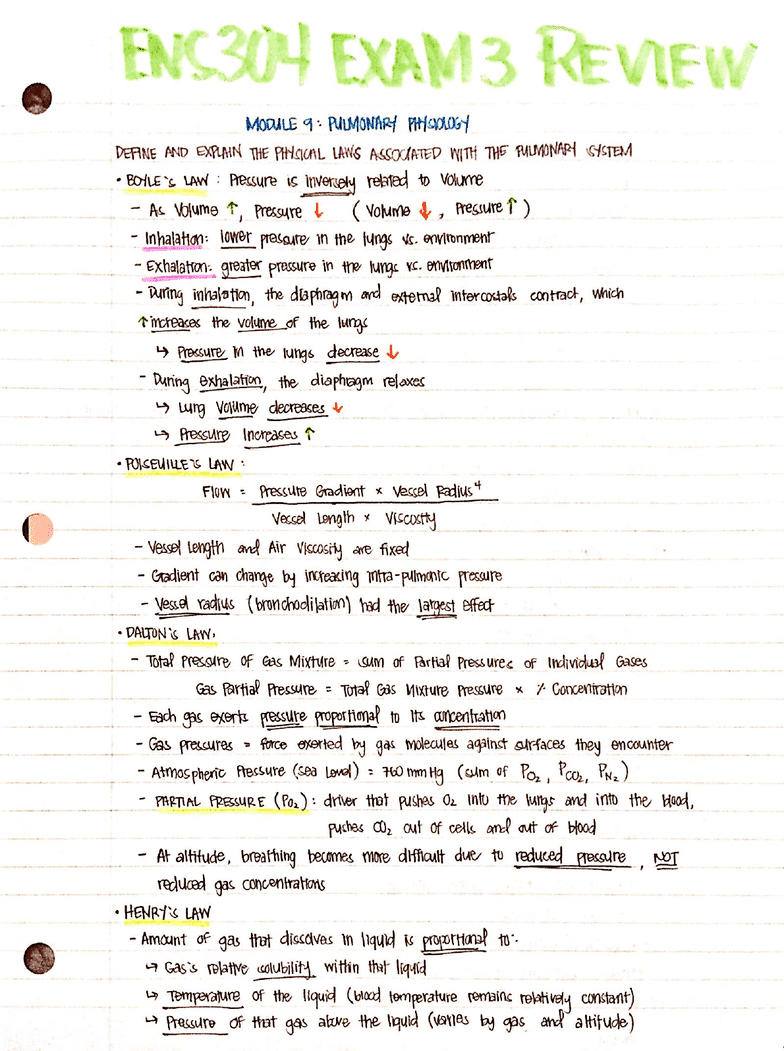 ENS304 EXAM 3 REVIEW
MODULE 9: PULMONARY PHYSIOLOGY
DEFINE AND EXPLAIN THE PHYSICAL LAWS ASSOCIATED WITH THE PULMONARY SYSTEM
• BOYLE'S LAW: Pressure is inversely related to Volume
- As Volume ↑, Pressure ↓ (Volume ↓, Pressure ↑)
- Inhalation: lower pressure in the lungs vs. environment
- Exhalation: greater pressure in the lungs vs. environment
- During inhalation, the diaphragm and external intercostals contract, which
↑ increases the volume of the lungs
↳ Pressure in the lungs decrease ↓
- During exhalation, the diaphragm relaxes
↳ Lung Volume decreases ↓
↳ Pressure Increases ↑
• POISEUILLE'S LAW:
Flow = Pressure Gradient × Vessel Radius⁴
Vessel Length × Viscosity
- Vessel Length and Air Viscosity are fixed
- Gradient can change by increasing intra-pulmonic pressure
- Vessel radius (bronchodilation) had the largest effect
• DALTON'S LAW:
- Total Pressure of Gas Mixture = sum of Partial Pressures of Individual Gases
Gas Partial Pressure = Total Gas Mixture Pressure × % Concentration
- Each gas exerts pressure proportional to its concentration
- Gas pressures = force exerted by gas molecules against surfaces they encounter
- Atmospheric Pressure (sea level) = 760 mmHg (sum of PO₂, PCO₂, PN₂)
- PARTIAL PRESSURE (PO₂): driver that pushes O₂ into the lungs and into the blood,
pushes CO₂ out of cells and out of blood
- At altitude, breathing becomes more difficult due to reduced pressure, NOT
reduced gas concentrations
• HENRY'S LAW
- Amount of gas that dissolves in liquid is proportional to:
↳ Gas's relative solubility within that liquid
↳ Temperature of the liquid (blood temperature remains relatively constant)
↳ Pressure of that gas above the liquid (varies by gas and altitude)